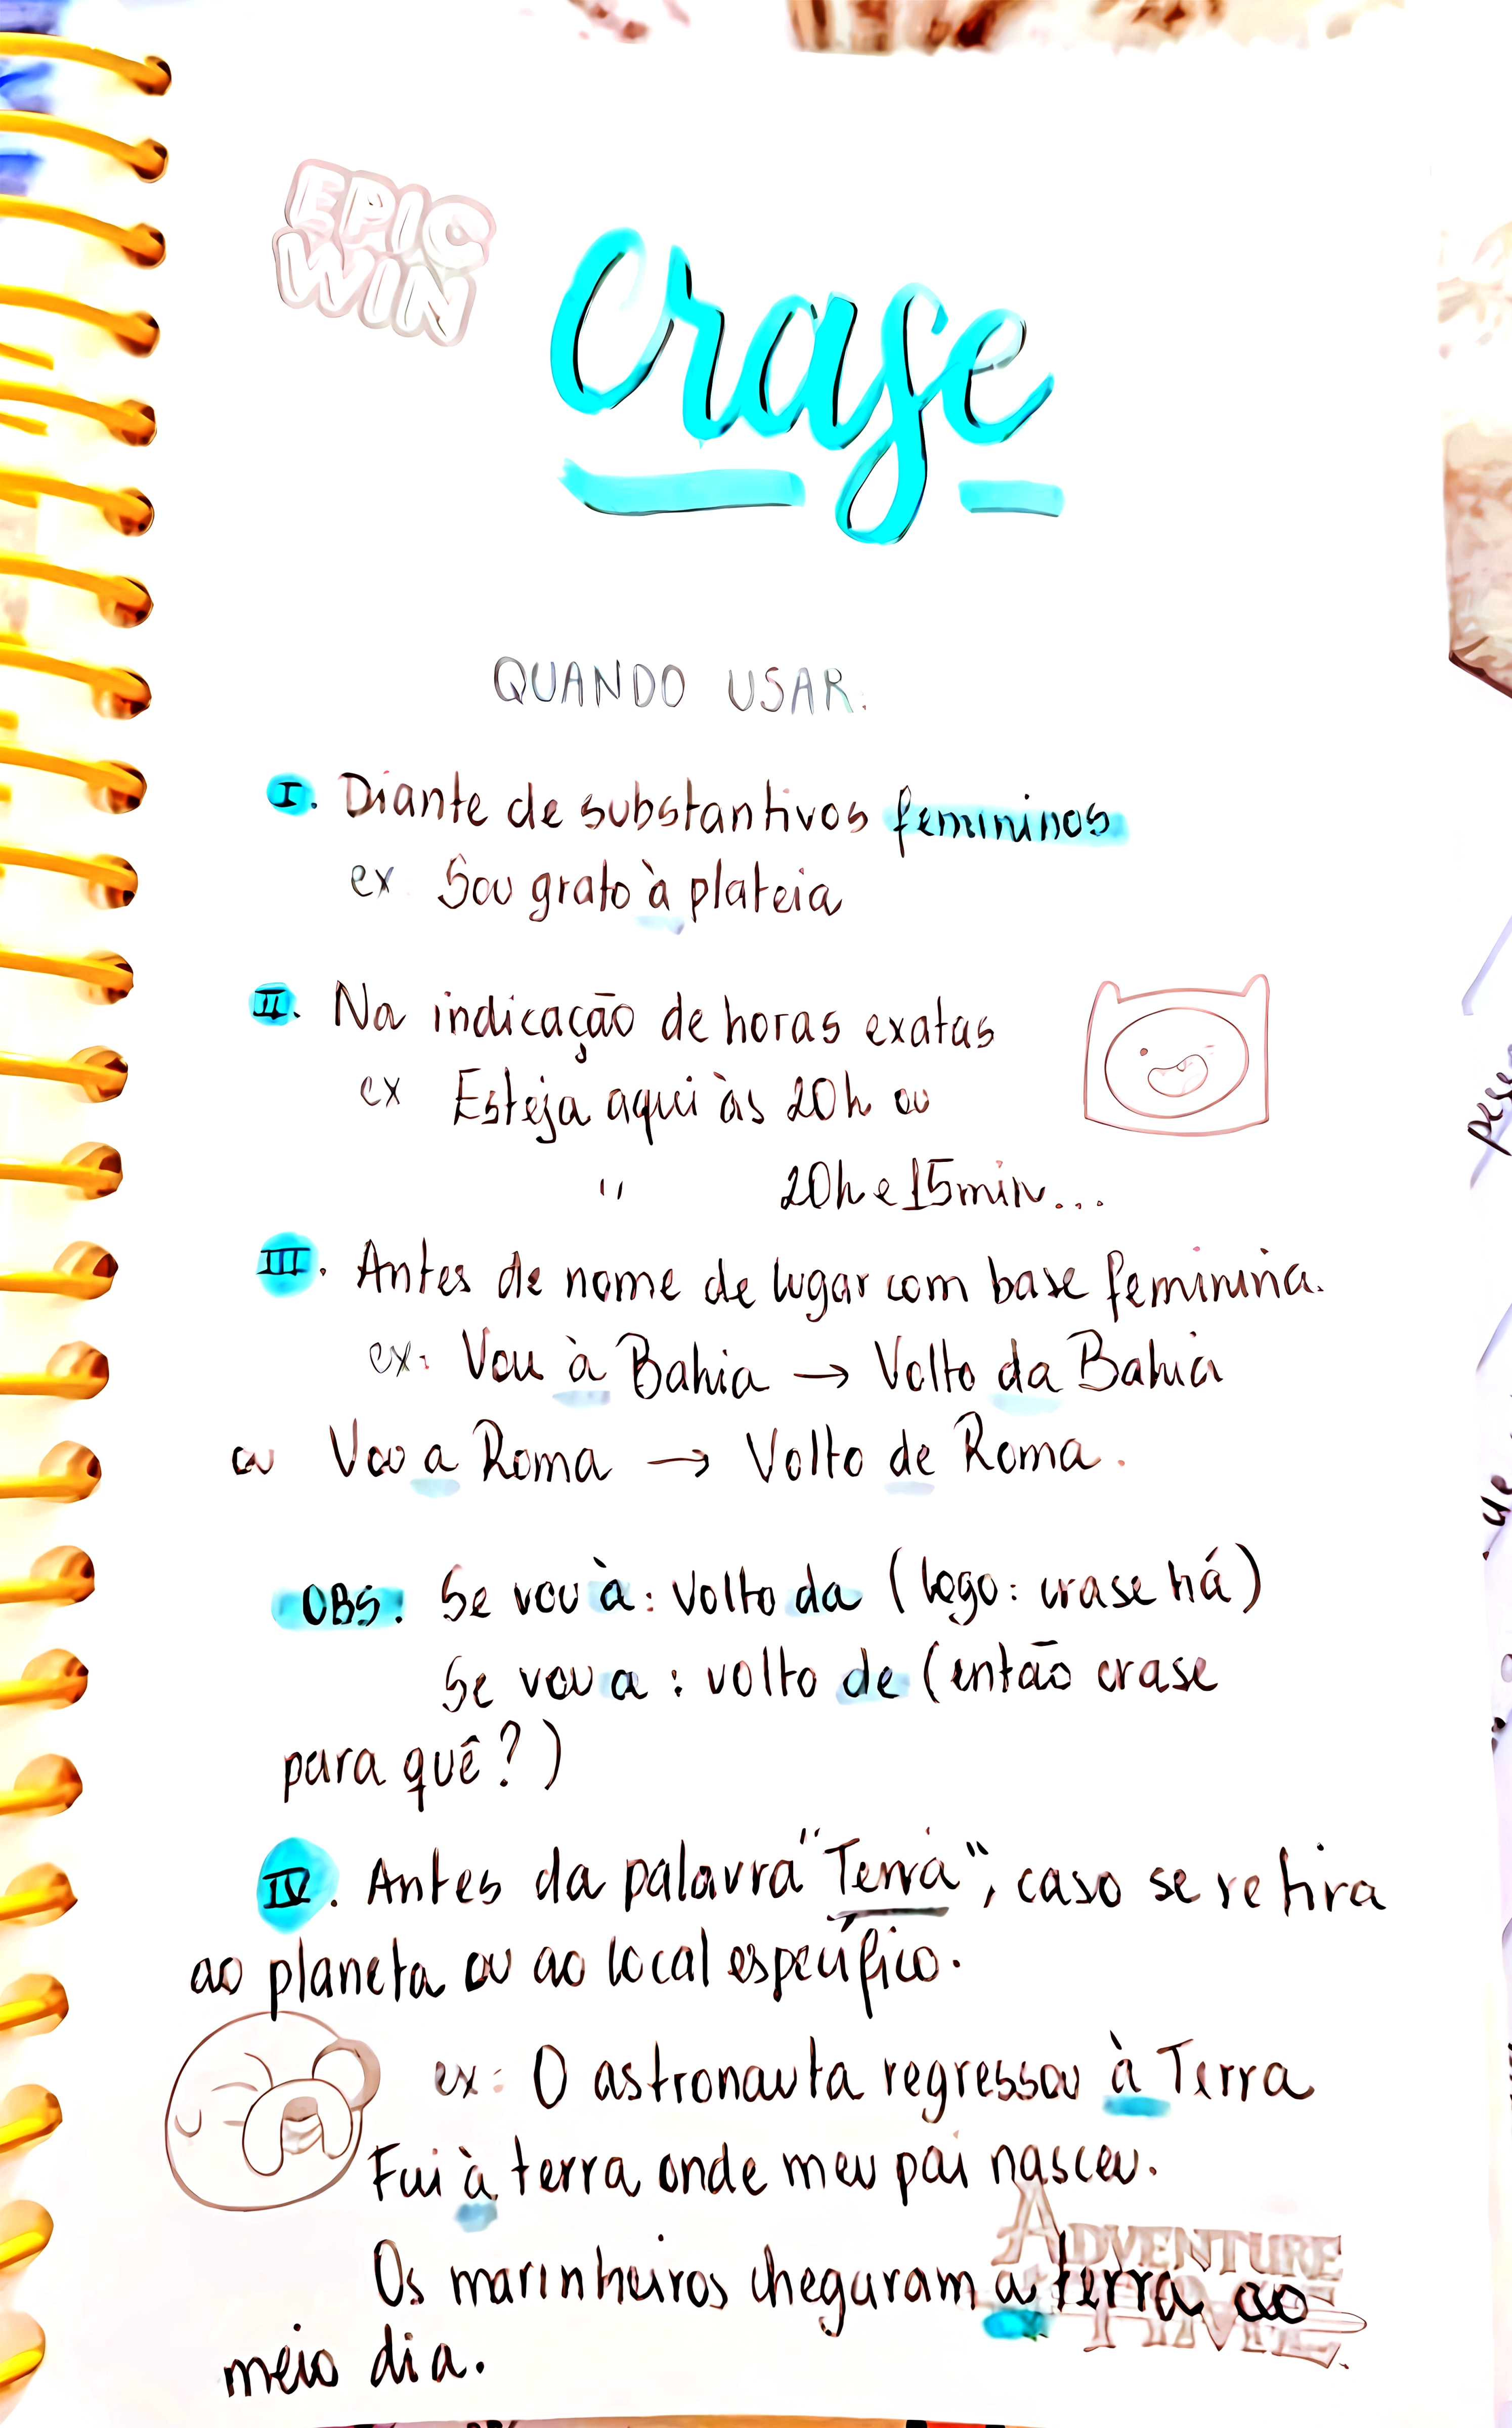 EPIC
WIN
Crase
QUANDO USAR:
I. Diante de substantivos femininos
ex Sou grato à plateia
II. Na indicação de horas exatas
ex Esteja aqui às 20h ou
" 20h e 15min...
III. Antes de nome de lugar com base feminina.
ex: Vou à Bahia → Volto da Bahia
ou Vou a Roma → Volto de Roma.
OBS: Se vou à: Volto da (logo: crase há)
Se vou a: volto de (então crase
para quê?)
IV. Antes da palavra "Terra", caso se refira
ao planeta ou ao local específico.
ex: O astronauta regressou à Terra
Fui à terra onde meu pai nasceu.
Os marinheiros chegaram a terra ao
meio dia.
ADVENTURE
TIME